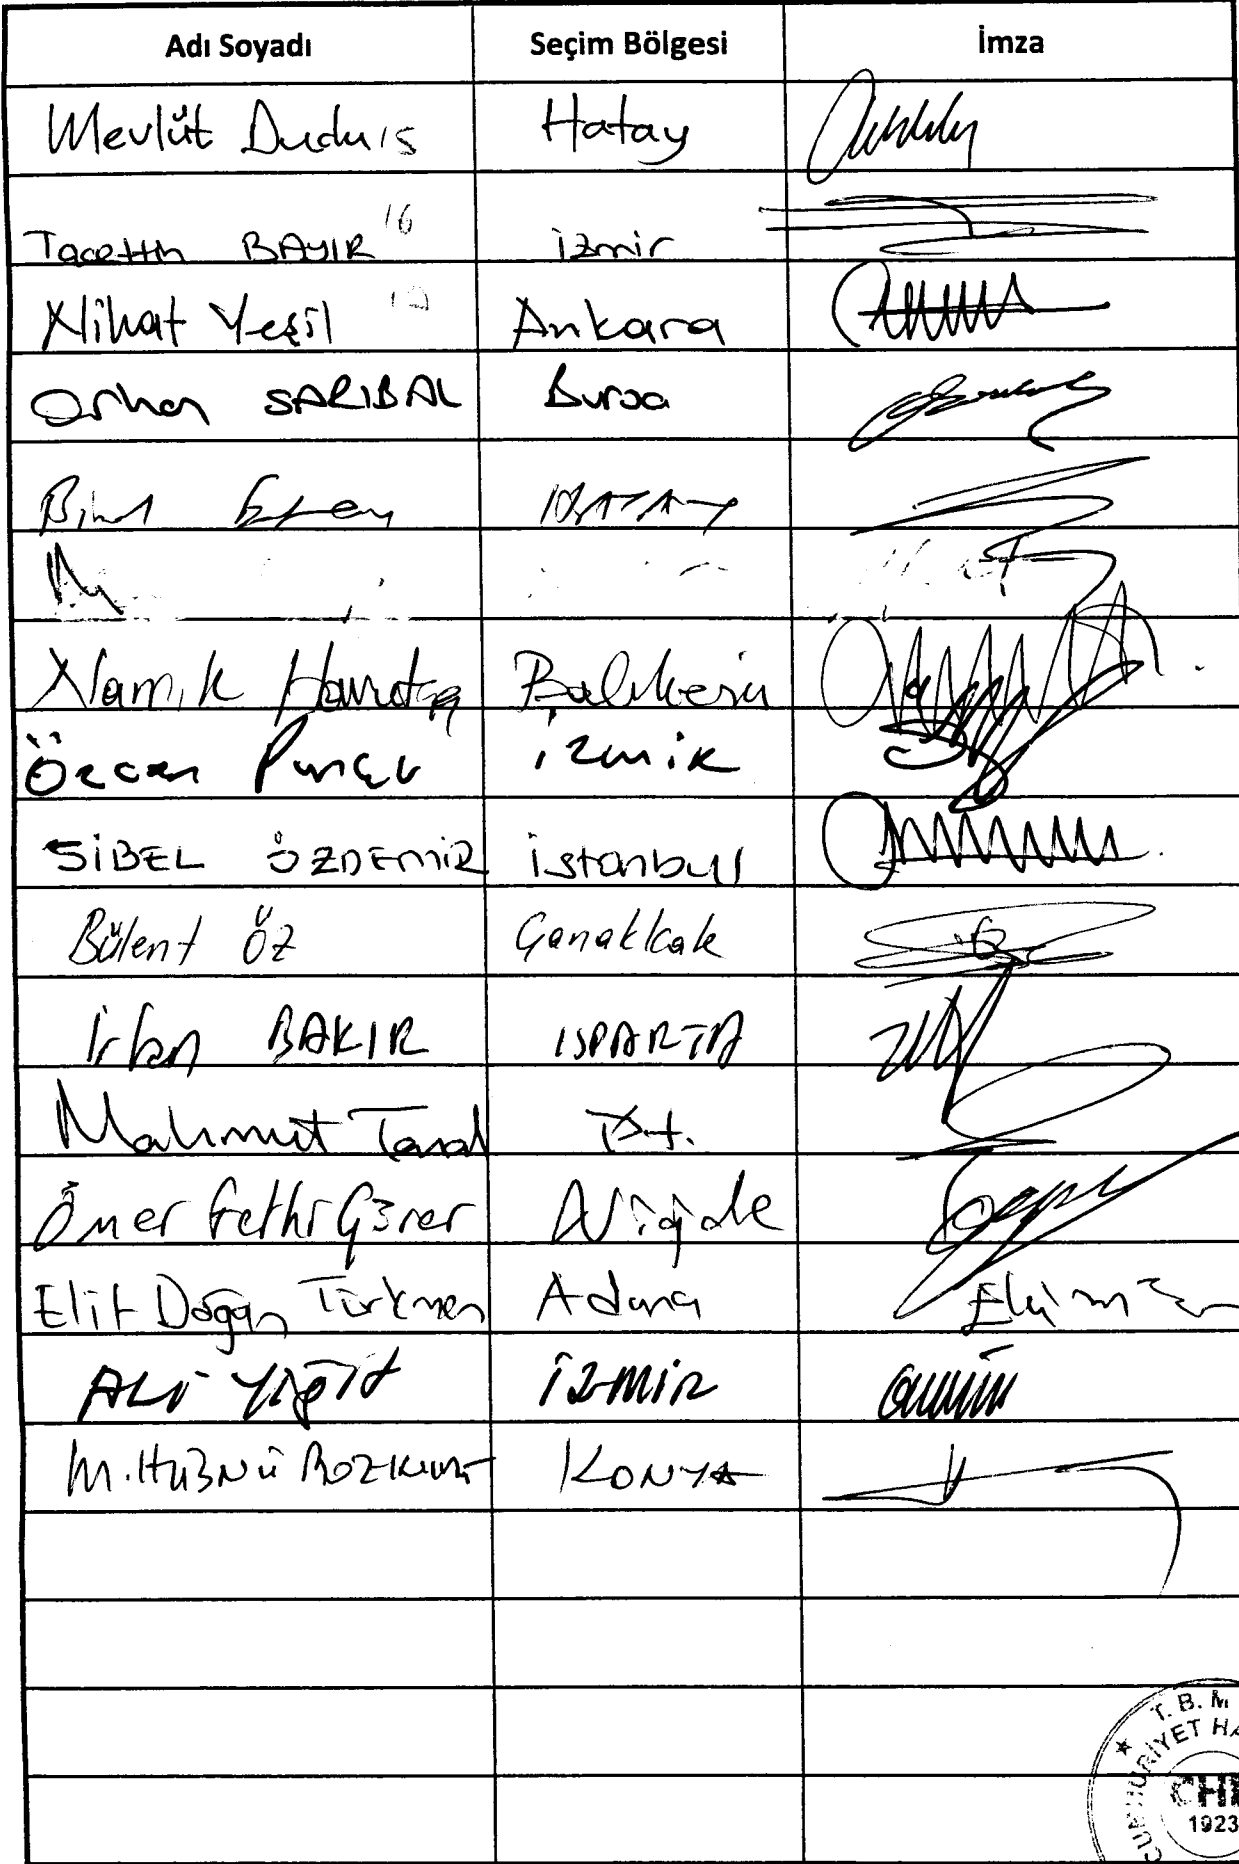 Adı Soyadı Seçim Bölgesi İmza
Mevlüt Dudu Hatay
Tacettin BAYIR 16 izmir
Nihat Yeşil Ankara
Orhan SARIBAL Bursa
HATAY
Namık Havutça Balıkesir
Özcan Purçu izmiR
SİBEL ÖZDEMİR istanbul
Bülent ÖZ Çanakkale
İrfan BAKIR ISPARTA
Mahmut Tanal İst.
Ömer Fethi Gürer Niğde
Elif Doğan Türkmen Adana
ALİ YİĞİT İZMİR
M. HÜSNÜ BOZKURT KONYA
T. B. M
CUMHURİYET HA
CHP
1923